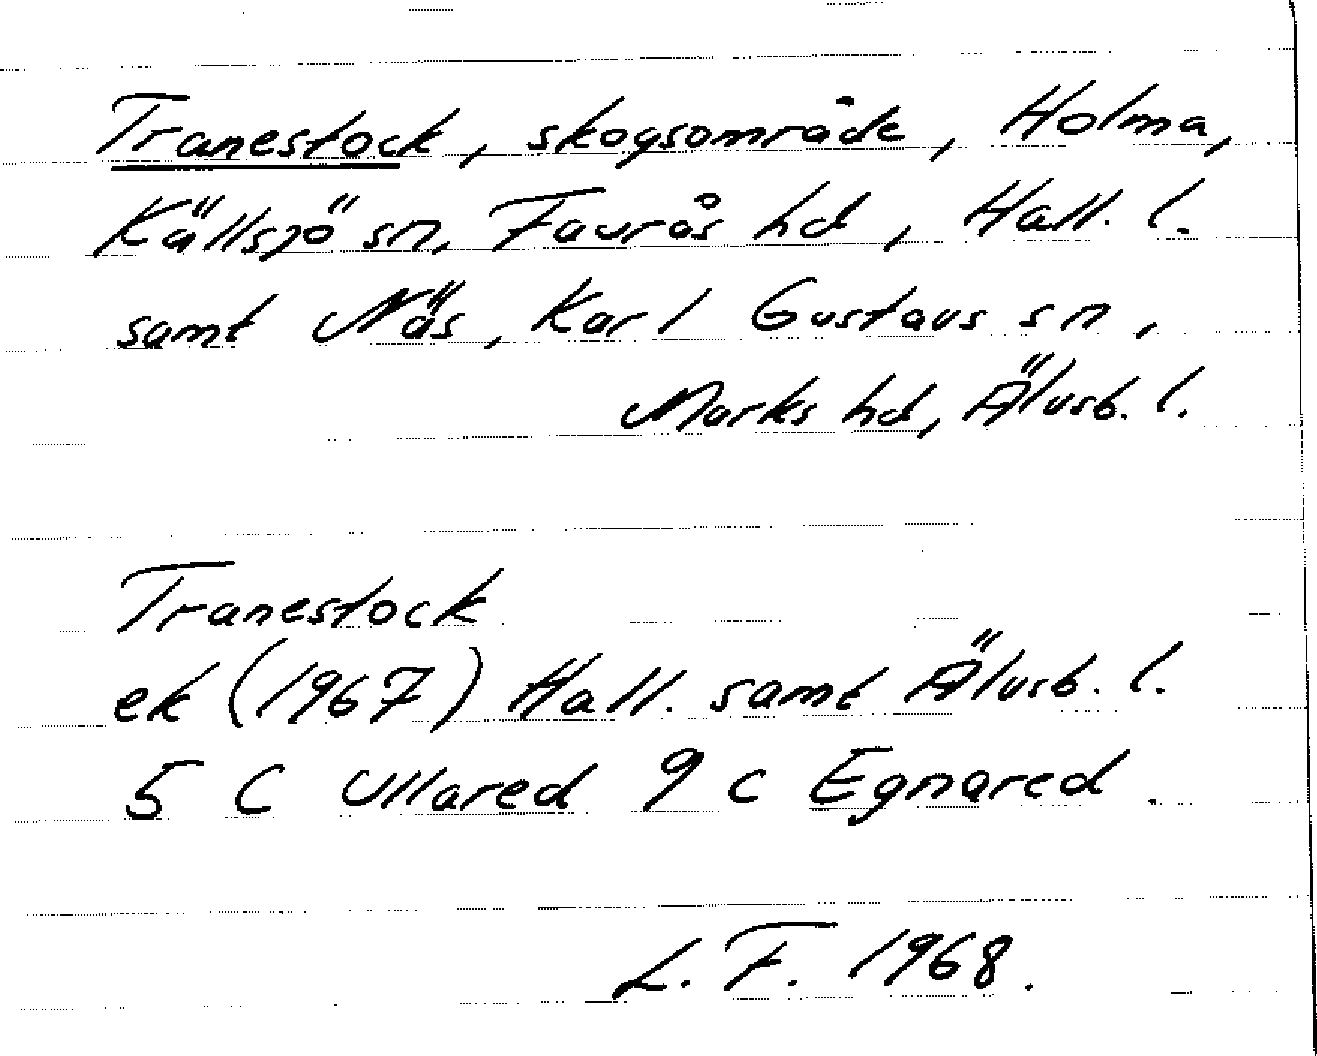 Tranestock, skogsområde, Holma,
Källsjö sn, Faurås hd, Hall. l.
samt Näs, Karl Gustavs sn,
Marks hd, Älvsb. l.
Tranestock
ek (1967) Hall. samt Älvsb. l.
5 C Ullared 9 c Egnared.
L. F. 1968.